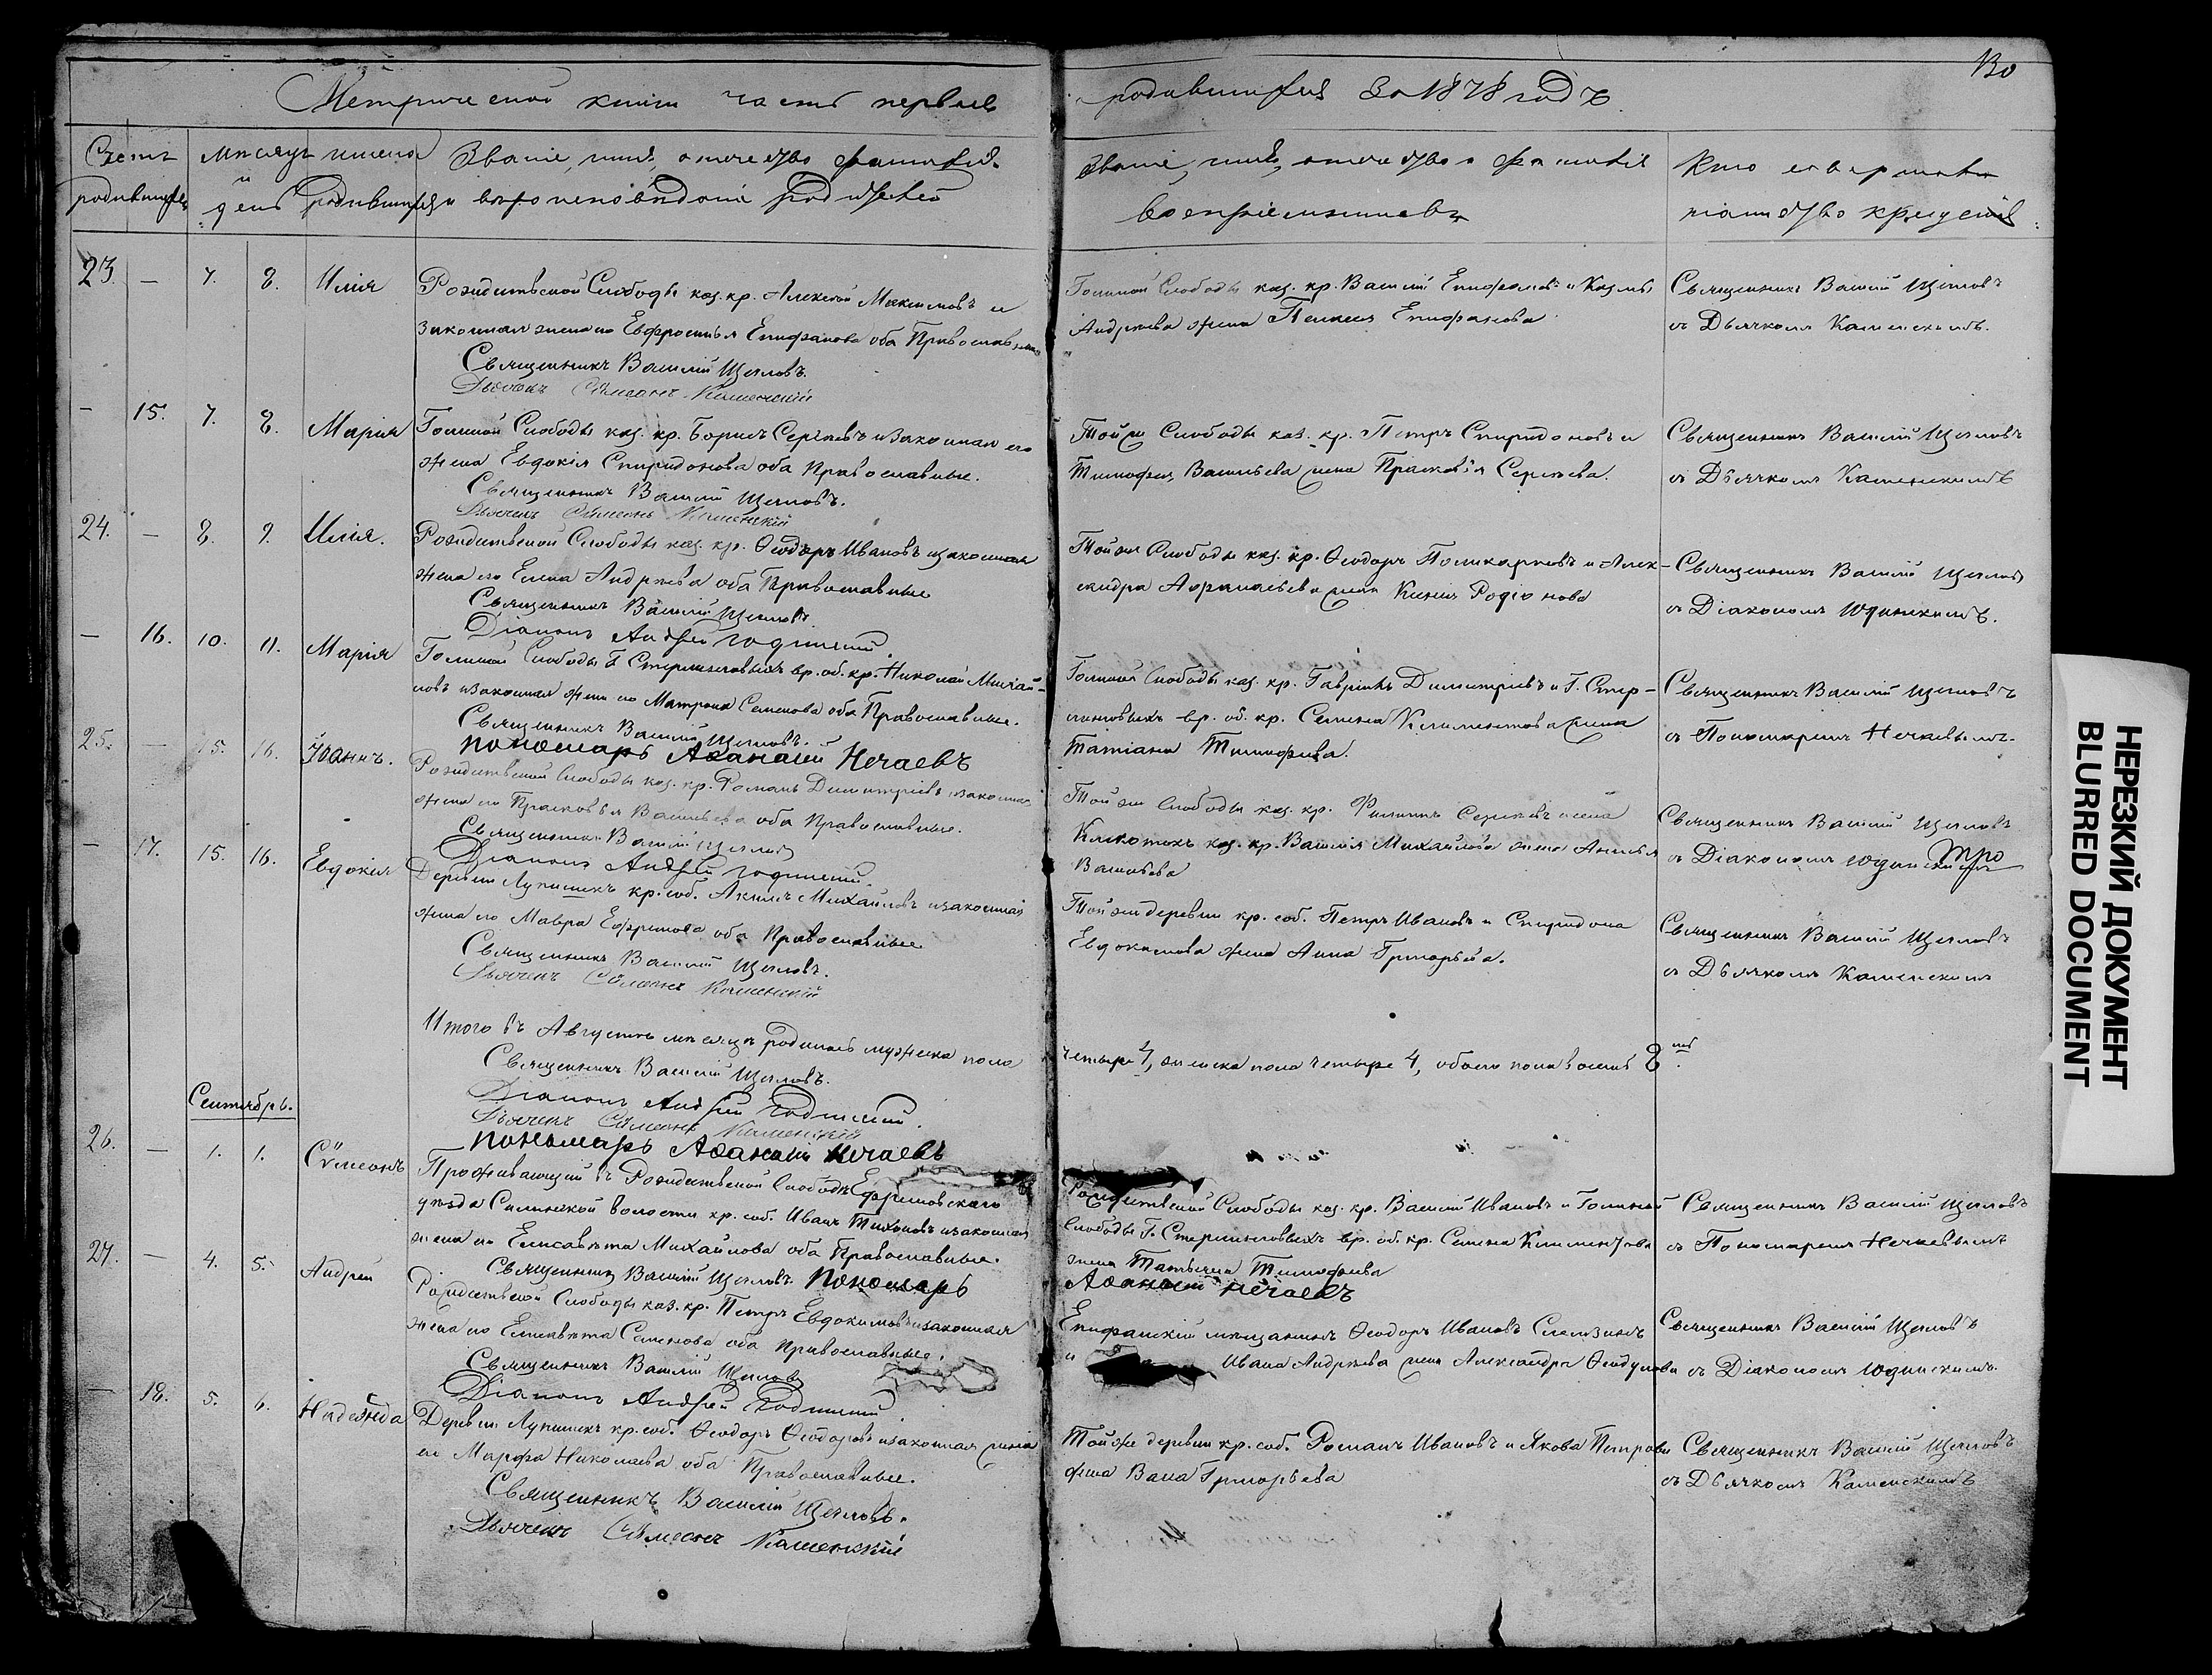 130
Метрической книги часть первая родившихся за 1878 годъ
Счетъ родившихся
Мѣсяцъ и день
имена родившихся
Званіе, имя, отчество фамилія и вѣроисповѣданіе родителей
Званіе, имя, отчество и фамилія воспріемниковъ
Кто совершалъ таинство крещенія
23. — 7. 8. Илія
Рождественской Слободы каз. кр. Алексѣй Максимовъ и
законная жена его Евфросинья Епифанова оба Православные
Священникъ Василій Щегловъ.
Дьячекъ Сѵмеонъ Каменскій
Голиной Слободы каз. кр. Василій Епифановъ и Козмы
Андреева жена Епифанова.
Священникъ Василій Щегловъ
съ Дьячкомъ Каменскимъ.
— 15. 7. 8. Марія
Голиной Слободы каз. кр. Борисъ Сергѣевъ и законная его
жена Евдокія Спиридонова оба Православные.
Священникъ Василій Щегловъ.
Дьячекъ Сѵмеонъ Каменскій
Той же Слободы каз. кр. Петръ Спиридоновъ и
Тимофея Васильева жена Прасковія Сергѣева.
Священникъ Василій Щегловъ
съ Дьячкомъ Каменскимъ
24. — 8. 9. Илія.
Рождественской Слободы каз. кр. Ѳеодоръ Ивановъ и законная
жена его Елена Андреева оба Православные
Священникъ Василій Щегловъ.
Діаконъ Андрей
Той же Слободы каз. кр. Ѳеодоръ Поликарповъ и Алек-
сандра Аѳанасьева жена Ксенія Родіонова
Священникъ Василій Щегловъ
съ Діакономъ
— 16. 10. 11. Марія
Голиной Слободы Г. Стерлиговыхъ вр. об. кр. Николай Михай-
ловъ и законная жена его Матрона Семенова оба Православные.
Священникъ Василій Щегловъ.
Пономарь Аѳанасій Нечаевъ
Голиной Слободы каз. кр. Гавріилъ Димитріевъ и Г. Стер-
лиговыхъ вр. об. кр. Семена Климентова жена
Татіана Тимофеева.
Священникъ Василій Щегловъ
съ Пономаремъ Нечаевымъ.
25. — 15. 16. Іоаннъ.
Рождественской Слободы каз. кр. Романъ Димитріевъ и законная
жена его Прасковья Васильева оба Православные.
Священникъ Василій Щегловъ
Діаконъ Андрей
Той же Слободы каз. кр. Филиппъ Сергѣевъ и села
каз. кр. Василія Михайлова жена Анисья
Васильева
Священникъ Василій Щегловъ
съ Діакономъ
— 17. 15. 16. Евдокія
Деревни Лупишекъ кр. соб. Акимъ Михайловъ и законная
жена его Мавра Ефремова оба Православные
Священникъ Василій Щегловъ.
Дьячекъ Сѵмеонъ Каменскій
Той же деревни кр. соб. Петръ Ивановъ и Спиридона
Евдокимова жена Анна Григорьева.
Священникъ Василій Щегловъ
съ Дьячкомъ Каменскимъ
Итого въ Августѣ мѣсяцѣ родилось мужеска пола
четыре 4, женска пола четыре 4, обоего пола восемь 8
Священникъ Василій Щегловъ.
Діаконъ Андрей
Дьячекъ Сѵмеонъ Каменскій
Пономарь Аѳанасій Нечаевъ
Сентябрь.
26. — 1. 1. Сѵмеонъ
Проживающій въ Рождественской Слободѣ Ефремовскаго
уѣзда волости кр. соб. Иванъ Тихоновъ и законная
жена его Елисавета Михайлова оба Православные.
Священникъ Василій Щегловъ. Пономарь
Аѳанасій Нечаевъ
Рождественской Слободы каз. кр. Василій Ивановъ и Голиной
Слободы Г. Стерлиговыхъ вр. об. кр. Семена Климентова
жена Татьяна Тимофеева
Священникъ Василій Щегловъ
съ Пономаремъ Нечаевымъ
27. — 4. 5. Андрей
Рождественской Слободы каз. кр. Петръ Евдокимовъ и законная
жена его Елисавета Семенова оба Православные.
Священникъ Василій Щегловъ
Діаконъ Андрей
Епифанскій мѣщанинъ Ѳеодоръ Ивановъ
и Ивана Андреева жена Александра
Священникъ Василій Щегловъ
съ Діакономъ
— 18. 5. 6. Надежда
Деревни Лупишекъ кр. соб. Ѳеодоръ Ѳеодоровъ и законная жена
его Марфа Николаева оба Православные.
Священникъ Василій Щегловъ.
Дьячекъ Сѵмеонъ Каменскій
Той же деревни кр. соб. Романъ Ивановъ и Якова Петрова
жена Григорьева
Священникъ Василій Щегловъ
съ Дьячкомъ Каменскимъ
НЕРЕЗКИЙ ДОКУМЕНТ
BLURRED DOCUMENT